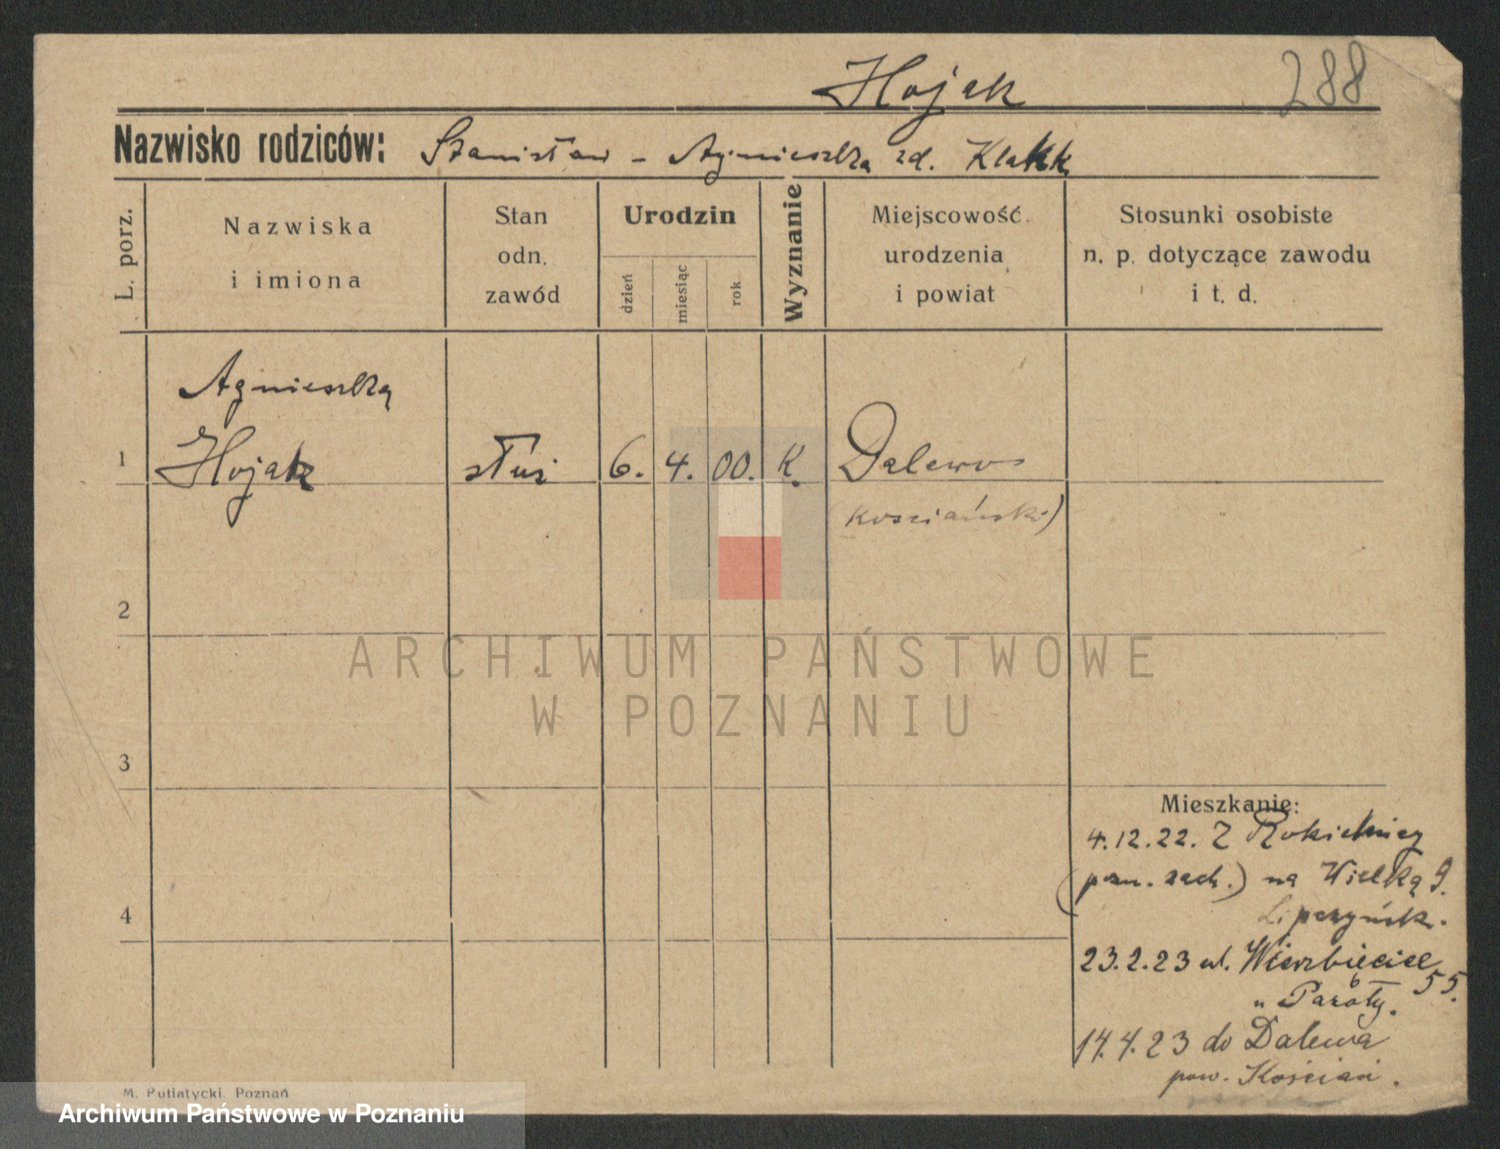 Hojak
288
Nazwisko rodziców: Stanisław - Agnieszka zd.
L. porz.
Nazwiska i imiona
Stan odn. zawód
Urodzin
dzień
miesiąc
rok
Wyznanie
Miejscowość urodzenia i powiat
Stosunki osobiste n. p. dotyczące zawodu i t. d.
Agnieszka
1 Hojak służ 6. 4. 00. K. Dalewo
(kościański)
2
3
4
ARCHIWUM PAŃSTWOWE
W POZNANIU
Mieszkanie:
4.12.22. Z Rokietnicy
(pozn. zach.) na Wielką 9.
23.2.23 ul. Wierzbięcice
55.
u
14.4.23 do Dalewa
pow. Kościan.
M. Putiatycki, Poznań
Archiwum Państwowe w Poznaniu